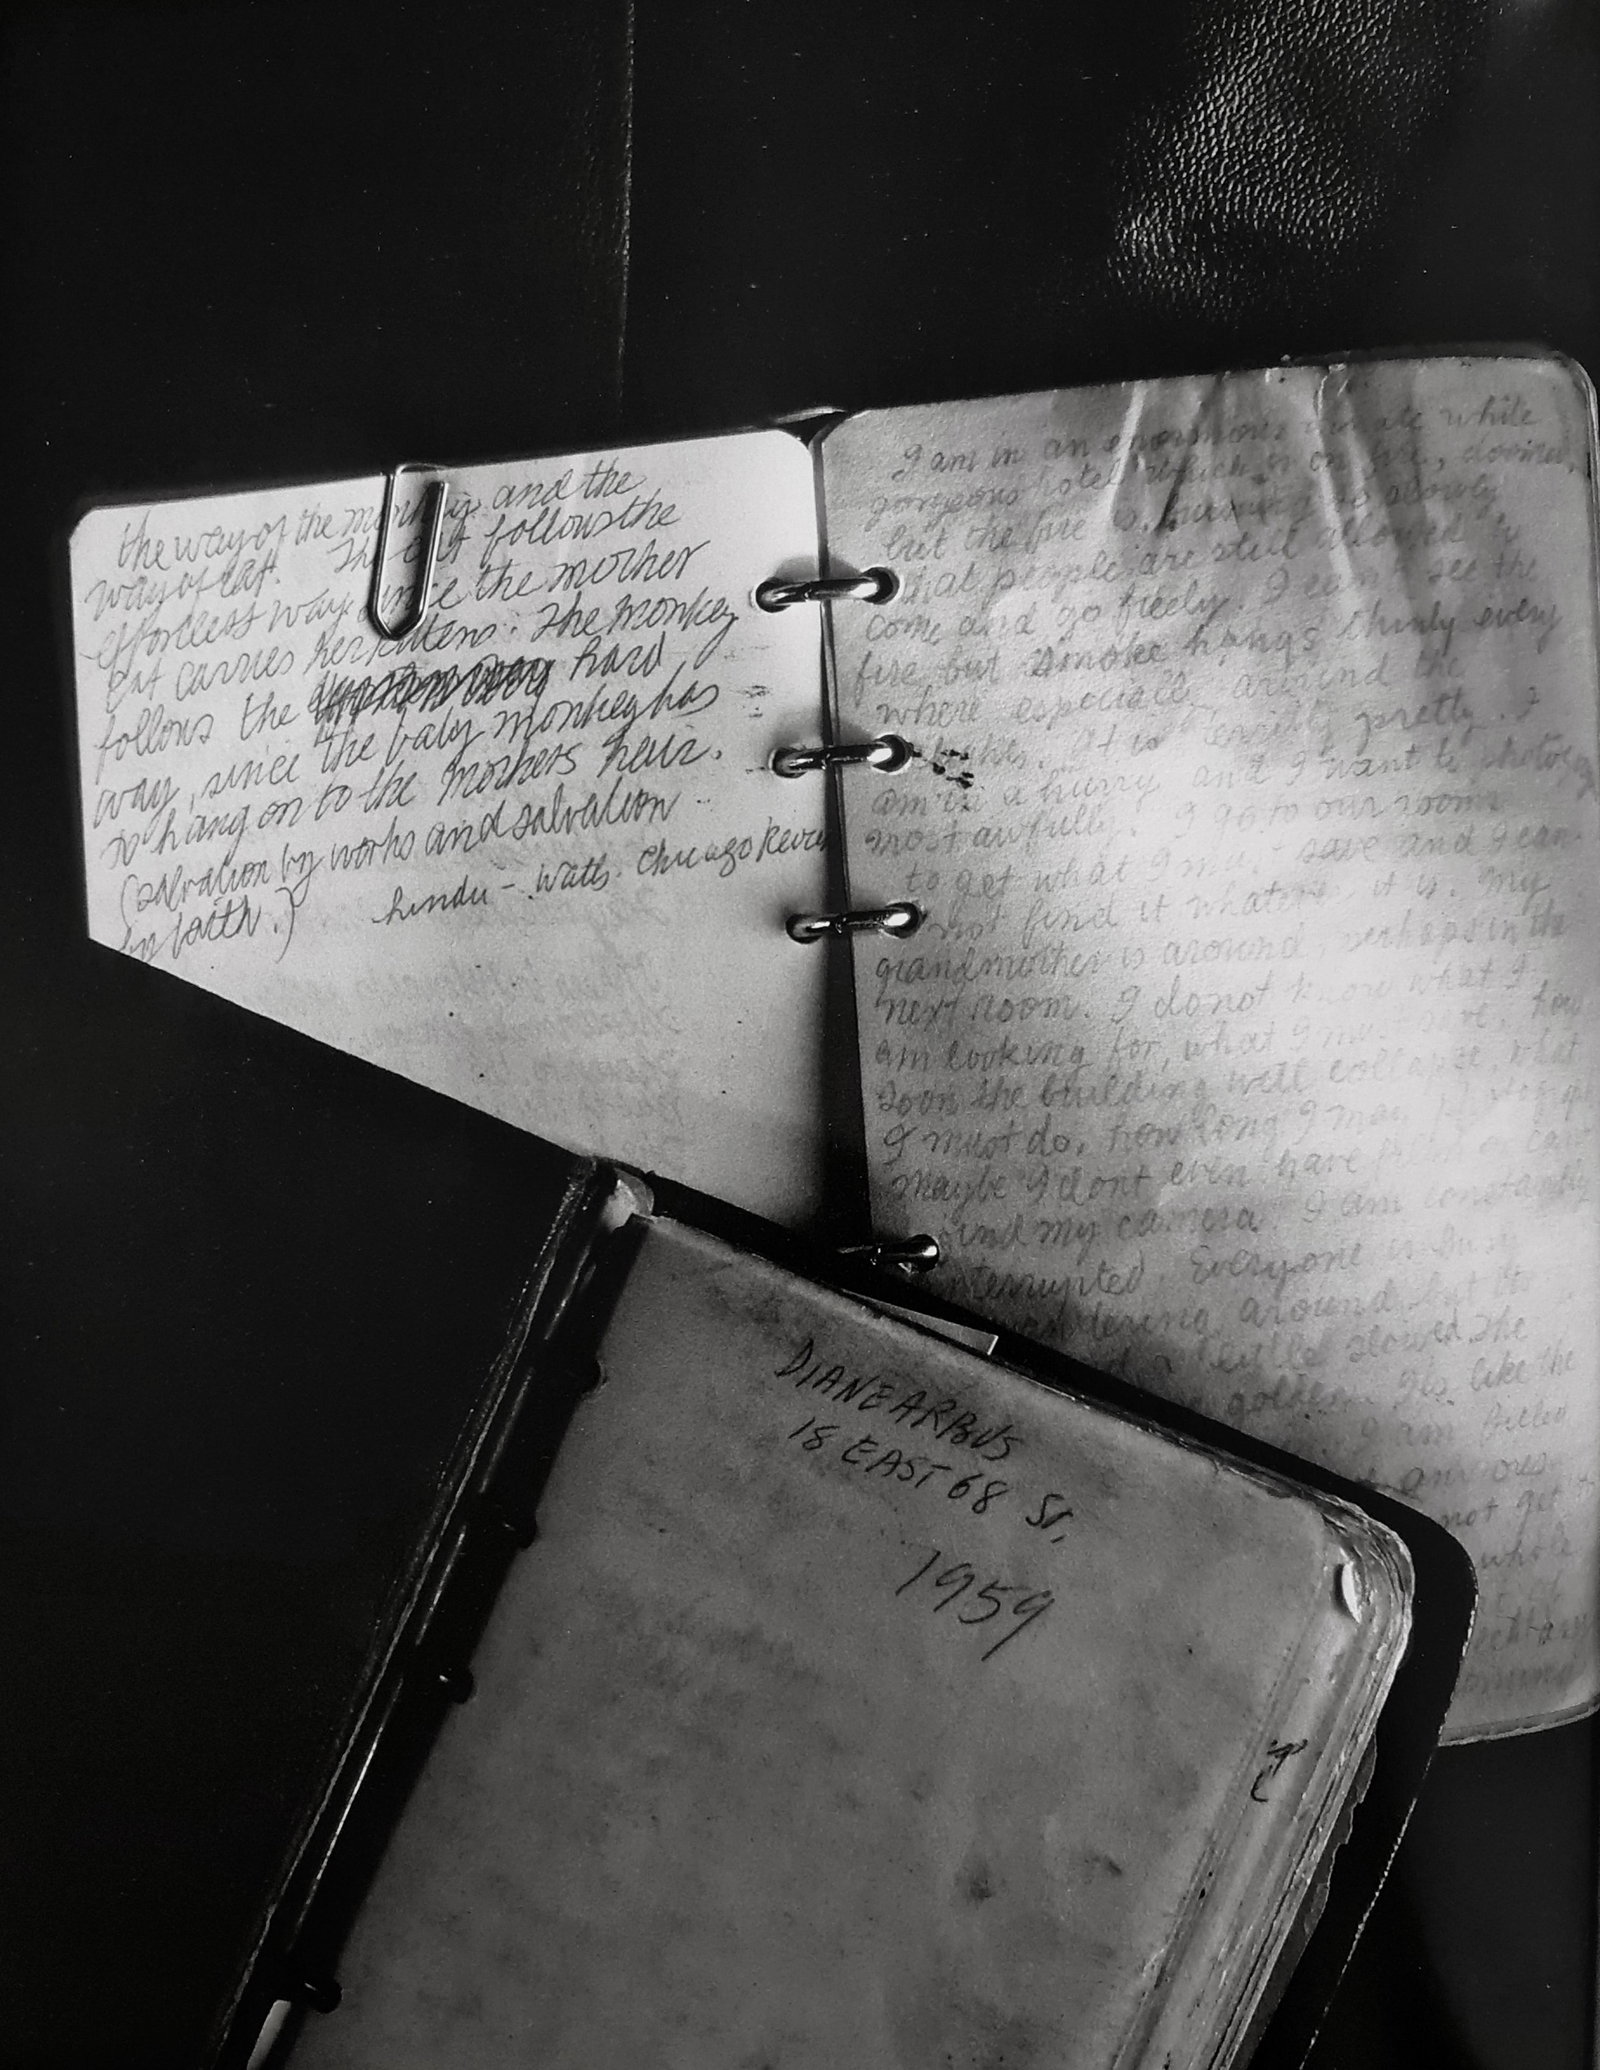 the way of the monkey and the
way of cat. The cat follows the
effortless way since the mother
cat carries her kittens. The monkey
follows the hard
way, since the baby monkey has
to hang on to the mothers hair.
(salvation by works and salvation
by faith.)
hindu - Watts. Chicago Review
I am in an enormous ornate white
gorgeous hotel which is on fire, doomed,
but the fire is burning so slowly
that people are still allowed to
come and go freely. I can't see the
fire but smoke hangs thinly every
where especially around the
lights. It is terribly pretty. I
am in a hurry and I want to photograph
most awfully. I go to our rooms
to get what I must save and I can
not find it whatever it is. My
grandmother is around, perhaps in the
next room. I do not know what I
am looking for, what I must save, how
soon the building will collapse, what
I must do, how long I may photograph
Maybe I dont even have film or cant
find my camera. I am constantly
interrupted. Everyone is busy
wandering around but its
little slowed. The
golden. Its like the
I am filled
anxious
not get to
whole
DIANE ARBUS
18 EAST 68 St.
1959